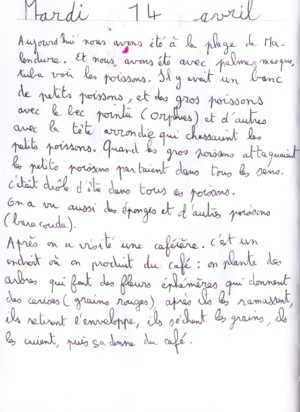 Mardi 14 avril
Aujourd'hui nous avons été à la plage de Ma-
lendure. Et nous avons été avec palmes, masque,
tuba voir les poissons. Il y avait un banc
de petits poissons, et des gros poissons
avec le bec pointu (orphies) et d'autres
avec la tête arrondie qui chassaient les
petits poissons. Quand les gros poissons attaquaient
les petits poissons partaient dans tous les sens.
C'était drôle d'être dans tous ces poissons.
On a vu aussi des éponges et d'autres poissons
(baracouda).
Après on a visité une caféière. c'est un
endroit où on produit du café : on plante des
arbres qui font des fleurs éphémères qui donnent
des cerises (grains rouges), après ils les ramassent,
ils retirent l'enveloppe, ils sèchent les grains, ils
les cuient, puis sa donne du café.